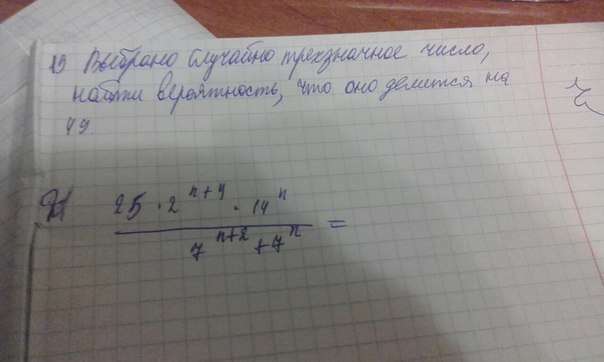 19 Выбрано случайно трехзначное число,
найти вероятность, что оно делится на
49.
25 · 2^{n+4} · 14^n
/ 7^{n+2} + 7^n =